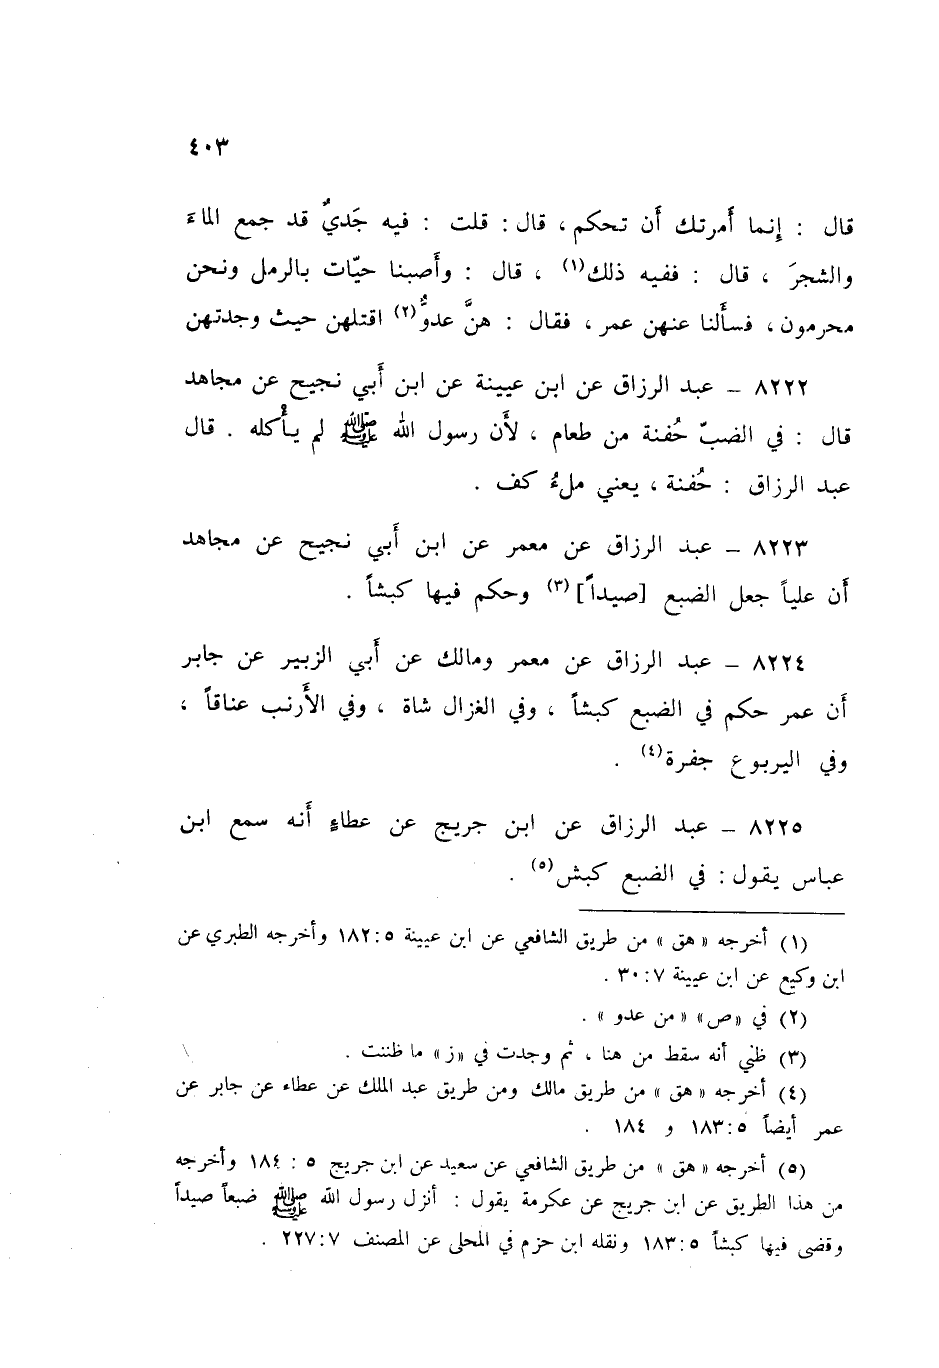 ٤٠٣
قال : إِنما أَمرتك أَن تحكم ، قال : قلت : فيه جَديٌ قد جمع الماءَ
والشجرَ ، قال : ففيه ذلك(١) ، قال : وأَصبنا حيّات بالرمل ونحن
محرمون ، فسأَلنا عنهن عمر ، فقال : هنَّ عدوٌّ(٢) اقتلهن حيث وجدتهن
٨٢٢٢ – عبد الرزاق عن ابن عيينة عن ابن أَبي نجيح عن مجاهد
قال : في الضبّ حُفنة من طعام ، لأَن رسول الله ﷺ لم يأْكله . قال
عبد الرزاق : حُفنة ، يعني ملءُ كف .
٨٢٢٣ – عبد الرزاق عن معمر عن ابن أَبي نجيح عن مجاهد
أَن علياً جعل الضبع [صيداً](٣) وحكم فيها كبشاً .
٨٢٢٤ – عبد الرزاق عن معمر ومالك عن أَبي الزبير عن جابر
أَن عمر حكم في الضبع كبشاً ، وفي الغزال شاة ، وفي الأَرنب عناقاً ،
وفي اليربوع جفرة(٤) .
٨٢٢٥ – عبد الرزاق عن ابن جريج عن عطاءٍ أَنه سمع ابن
عباس يقول : في الضبع كبش(٥) .
(١) أخرجه « هق » من طريق الشافعي عن ابن عيينة ٥ : ١٨٢ وأخرجه الطبري عن
ابن وكيع عن ابن عيينة ٧ : ٣٠ .
(٢) في «ص» « من عدو » .
(٣) ظني أنه سقط من هنا ، ثم وجدت في «ز» ما ظننت .
(٤) أخرجه « هق » من طريق مالك ومن طريق عبد الملك عن عطاء عن جابر عن
عمر أيضاً ٥ : ١٨٣ و ١٨٤ .
(٥) أخرجه « هق » من طريق الشافعي عن سعيد عن ابن جريج ٥ : ١٨٤ وأخرجه
من هذا الطريق عن ابن جريج عن عكرمة يقول : أنزل رسول الله ﷺ ضبعاً صيداً
وقضى فيها كبشاً ٥ : ١٨٣ ونقله ابن حزم في المحلى عن المصنف ٧ : ٢٢٧ .